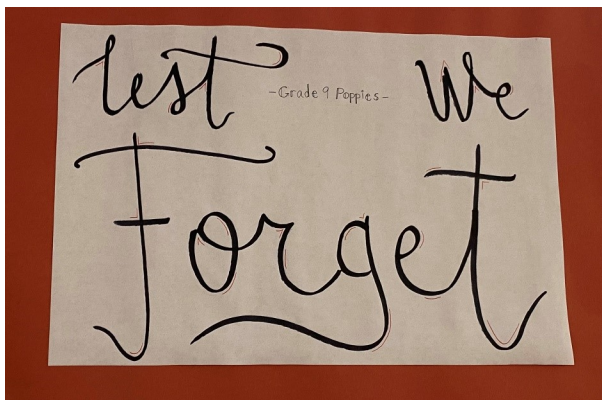 Lest We
-Grade 9 Poppies-
Forget